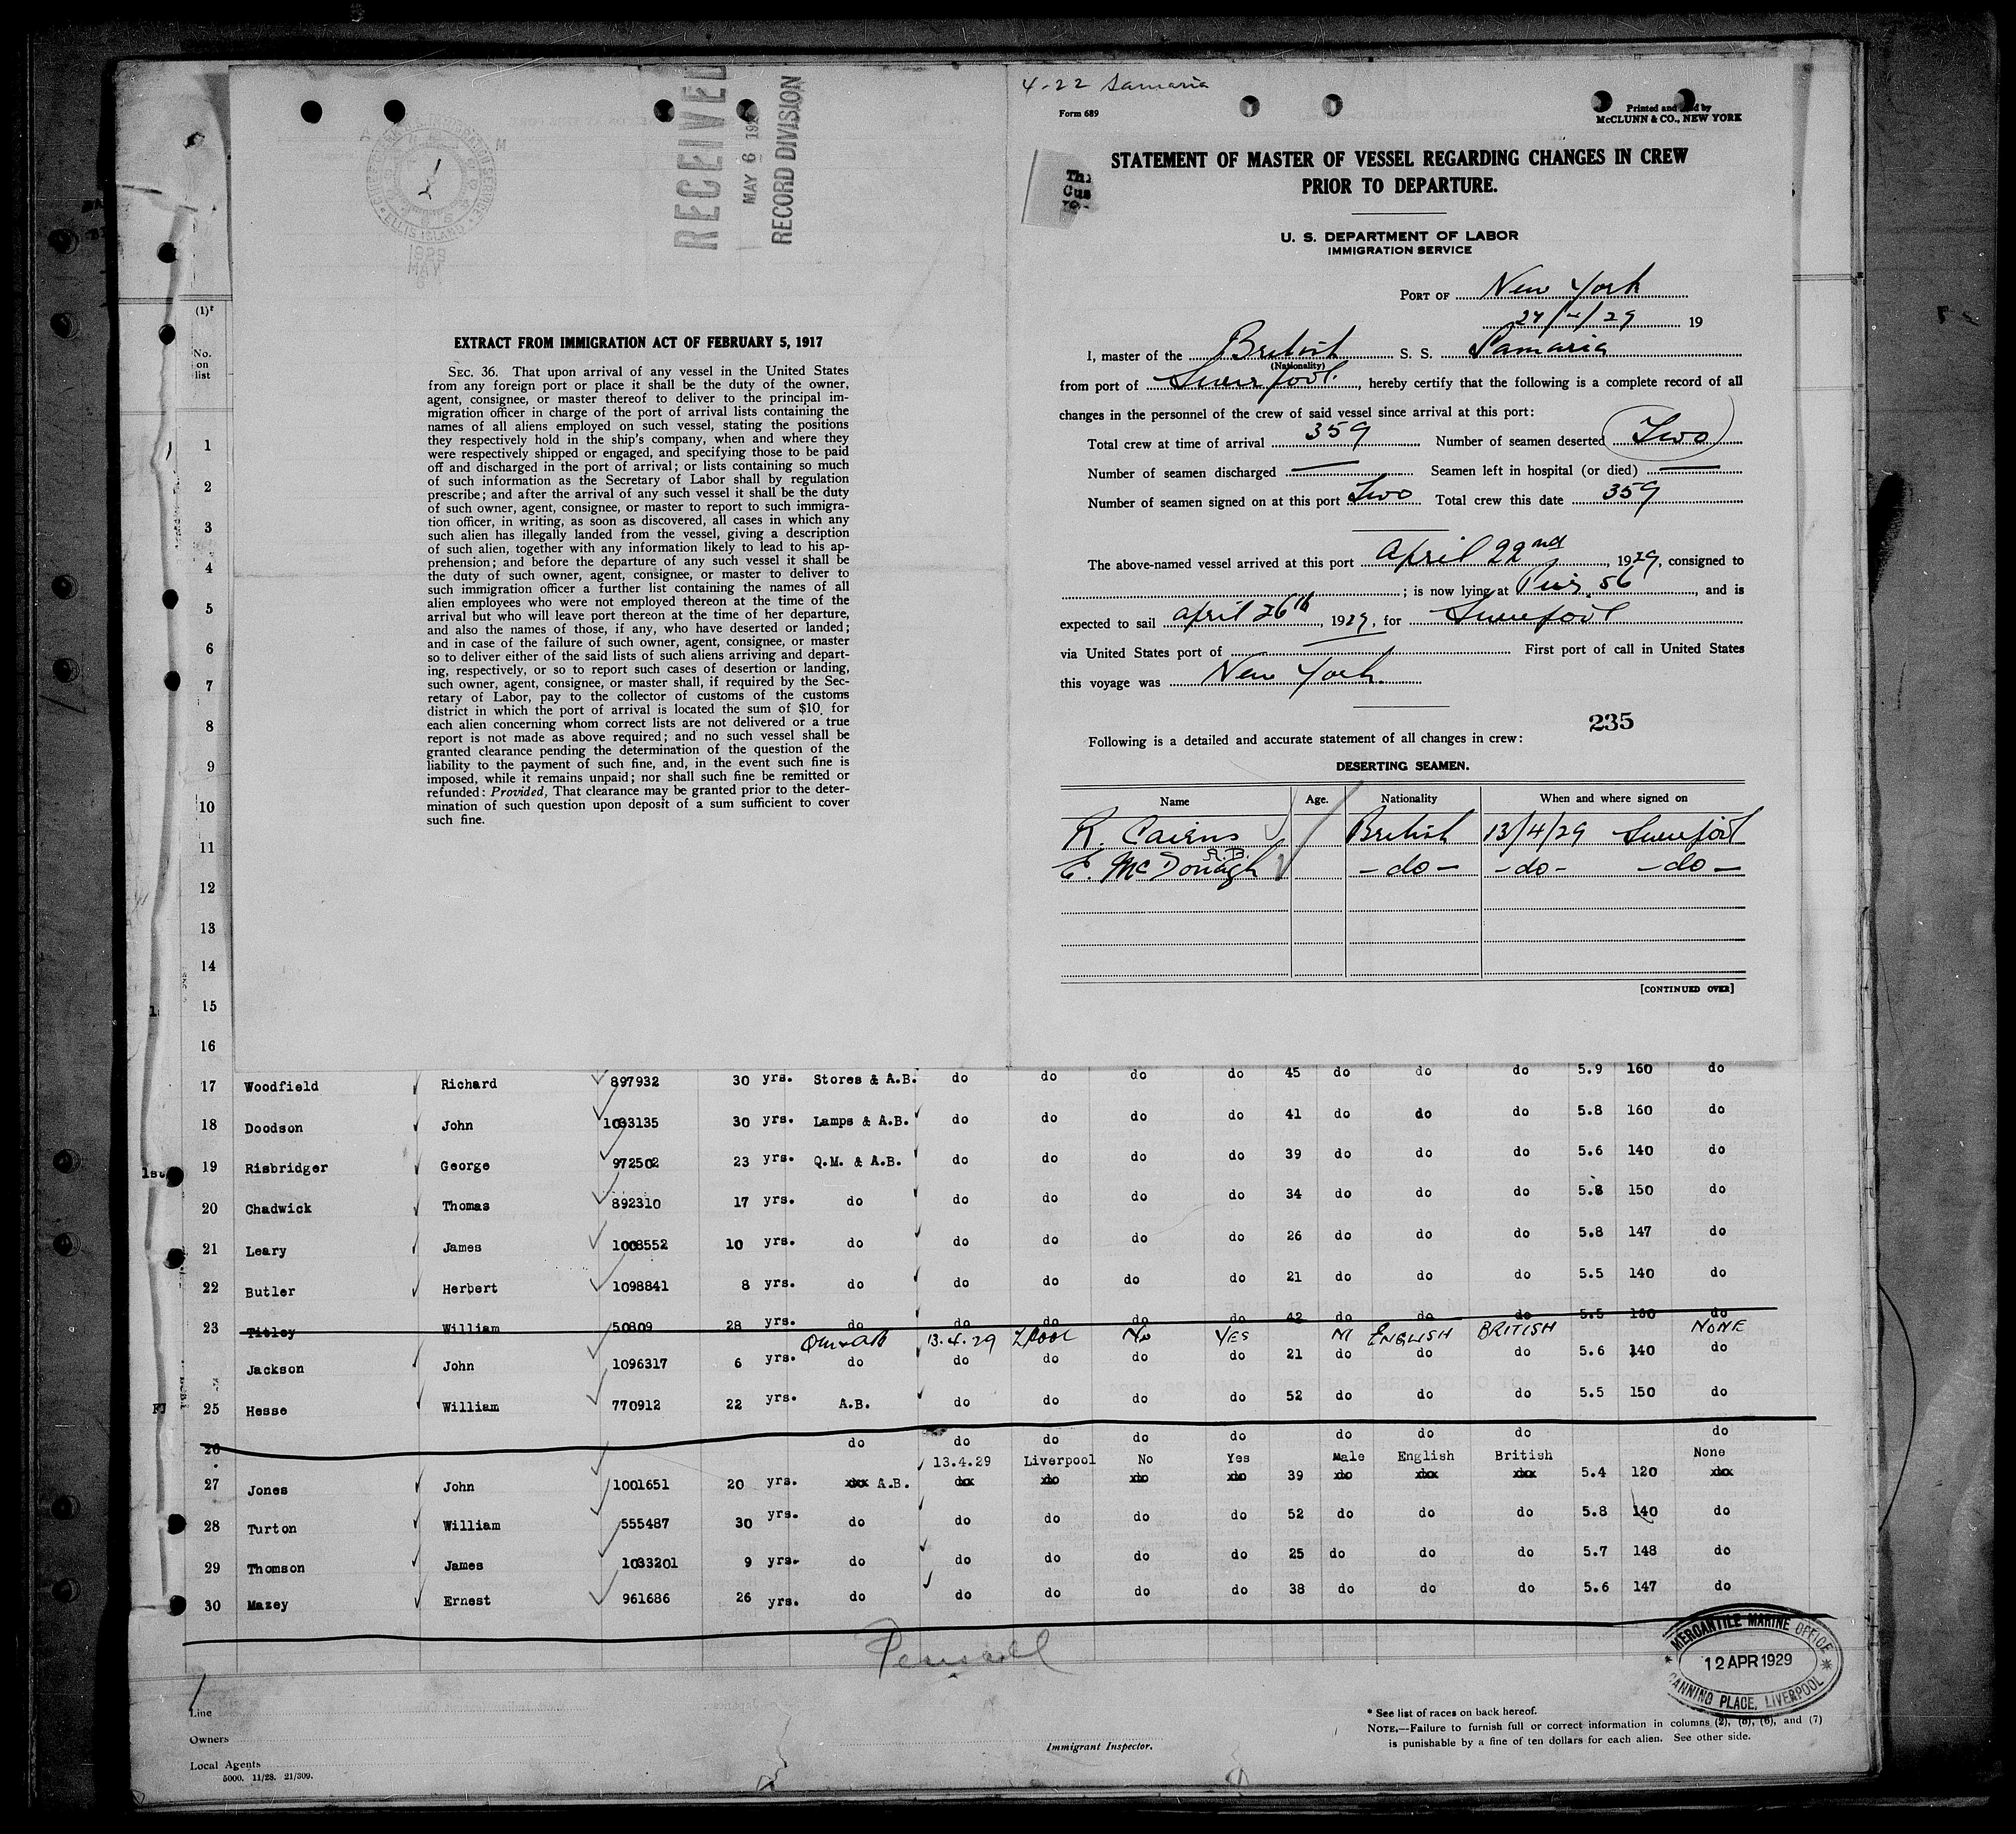 4-22 Samaria
Form 689
Printed and
by
McCLUNN & CO., NEW YORK
RECEIVED
MAY 6 192
RECORD DIVISION
ELLIS ISLAND
1929
MAY
STATEMENT OF MASTER OF VESSEL REGARDING CHANGES IN CREW
PRIOR TO DEPARTURE.
U. S. DEPARTMENT OF LABOR
IMMIGRATION SERVICE
PORT OF New York
/4/29 19
I, master of the British S. S. Samaria
(Nationality)
from port of Liverpool., hereby certify that the following is a complete record of all
changes in the personnel of the crew of said vessel since arrival at this port:
Total crew at time of arrival 359 Number of seamen deserted Two
Number of seamen discharged — Seamen left in hospital (or died) —
Number of seamen signed on at this port Two Total crew this date 359
The above-named vessel arrived at this port April 22nd, 1929, consigned to
; is now lying at Pier 56, and is
expected to sail April 26th, 1929, for Liverpool
via United States port of — First port of call in United States
this voyage was New York.
235
Following is a detailed and accurate statement of all changes in crew:
DESERTING SEAMEN.
Name Age. Nationality When and where signed on
R. Cairns British 13/4/29 Liverpool
A.B.
E. McDonagh -do- -do- -do-
[CONTINUED OVER]
EXTRACT FROM IMMIGRATION ACT OF FEBRUARY 5, 1917
SEC. 36. That upon arrival of any vessel in the United States
from any foreign port or place it shall be the duty of the owner,
agent, consignee, or master thereof to deliver to the principal im-
migration officer in charge of the port of arrival lists containing the
names of all aliens employed on such vessel, stating the positions
they respectively hold in the ship's company, when and where they
were respectively shipped or engaged, and specifying those to be paid
off and discharged in the port of arrival; or lists containing so much
of such information as the Secretary of Labor shall by regulation
prescribe; and after the arrival of any such vessel it shall be the duty
of such owner, agent, consignee, or master to report to such immigra-
tion officer, in writing, as soon as discovered, all cases in which any
such alien has illegally landed from the vessel, giving a description
of such alien, together with any information likely to lead to his ap-
prehension; and before the departure of any such vessel it shall be
the duty of such owner, agent, consignee, or master to deliver to
such immigration officer a further list containing the names of all
alien employees who were not employed thereon at the time of the
arrival but who will leave port thereon at the time of her departure,
and also the names of those, if any, who have deserted or landed;
and in case of the failure of such owner, agent, consignee, or master
so to deliver either of the said lists of such aliens arriving and depart-
ing, respectively, or so to report such cases of desertion or landing,
such owner, agent, consignee, or master shall, if required by the Sec-
retary of Labor, pay to the collector of customs of the customs
district in which the port of arrival is located the sum of $10, for
each alien concerning whom correct lists are not delivered or a true
report is not made as above required; and no such vessel shall be
granted clearance pending the determination of the question of the
liability to the payment of such fine, and, in the event such fine is
imposed, while it remains unpaid; nor shall such fine be remitted or
refunded: Provided, That clearance may be granted prior to the deter-
mination of such question upon deposit of a sum sufficient to cover
such fine.
(1)*
No.
on
list
1
2
3
4
5
6
7
8
9
10
11
12
13
14
15
16
17 Woodfield Richard 897932 30 yrs. Stores & A.B. do do do do 45 do do do 5.9 160 do
18 Doodson John 1033135 30 yrs. Lamps & A.B. do do do do 41 do do do 5.8 160 do
1st 19 Risbridger George 972502 23 yrs. Q.M. & A.B. do do do do 39 do do do 5.6 140 do
20 Chadwick Thomas 892310 17 yrs. do do do do do 34 do do do 5.8 150 do
21 Leary James 1008552 10 yrs. do do do do do 26 do do do 5.8 147 do
22 Butler Herbert 1098841 8 yrs. do do do do do 21 do do do 5.5 140 do
23 Titley William 50809 28 yrs. do do do do do 42 do do do 5.5 160 do
13.4.29 L'pool No YES M ENGLISH BRITISH NONE
Jackson John 1096317 6 yrs. do do do do do 21 do do do 5.6 140 do
25 Hesse William 770912 22 yrs. A.B. do do do do 52 do do do 5.5 150 do
26 do do do do do do do do do
13.4.29 Liverpool No Yes Male English British None
27 Jones John 1001651 20 yrs. A.B. 39 5.4 120
28 Turton William 555487 30 yrs. do do do do do 52 do do do 5.8 140 do
29 Thomson James 1033201 9 yrs. do do do do do 25 do do do 5.7 148 do
30 Mazey Ernest 961686 26 yrs. do do do do do 38 do do do 5.6 147 do
MERCANTILE MARINE OFFICE
12 APR 1929
CANNING PLACE, LIVERPOOL
Line
Owners
Local Agents
5000. 11/28. 21/309.
Immigrant Inspector.
* See list of races on back hereof.
NOTE.—Failure to furnish full or correct information in columns (2), (5), (6), and (7)
is punishable by a fine of ten dollars for each alien. See other side.